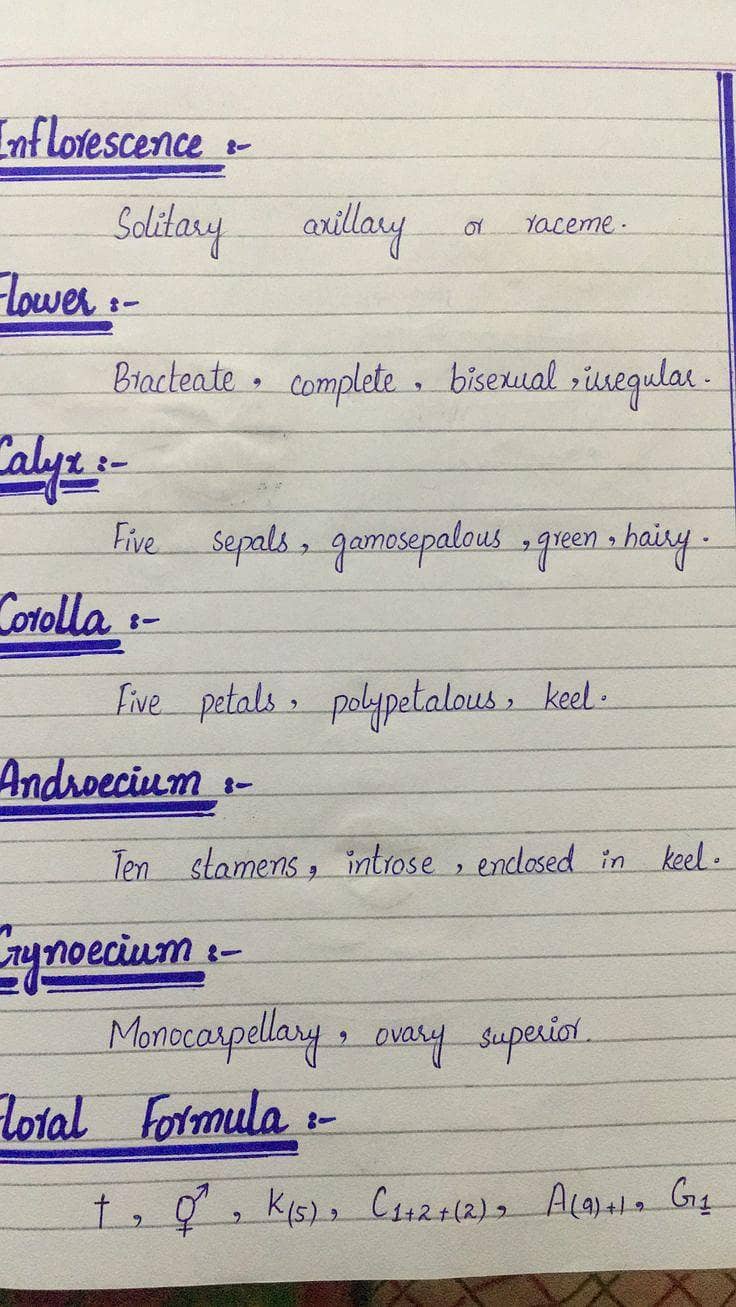 Inflorescence :-
Solitary axillary or raceme.
Flower :-
Bracteate, complete, bisexual, irregular.
Calyx :-
Five sepals, gamosepalous, green, hairy.
Corolla :-
Five petals, polypetalous, keel.
Androecium :-
Ten stamens, introse, enclosed in keel.
Gynoecium :-
Monocarpellary, ovary superior.
Floral Formula :-
†, ⚥, K(5), C1+2+(2), A(9)+1, G1